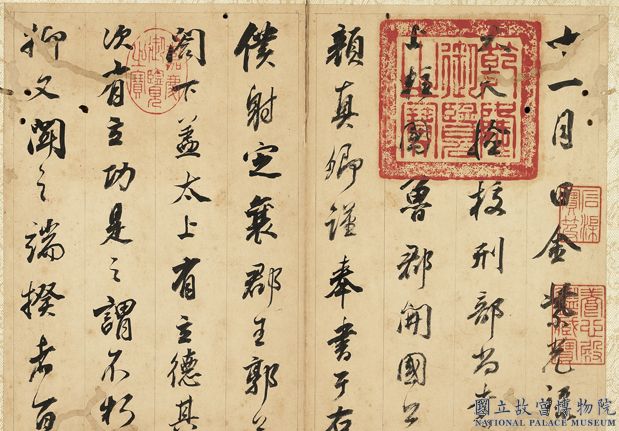 十一月日金紫光祿
大夫檢校刑部尚書
上柱國魯郡開國公
顏真卿謹奉書于右
僕射定襄郡王郭公
閣下蓋太上有立德其
次有立功是之謂不朽
抑又聞之端揆者百
乾隆御覽之寶
嘉慶御覽之寶
石渠寶笈
養心殿鑑藏寶
國立故宮博物院
NATIONAL PALACE MUSEUM